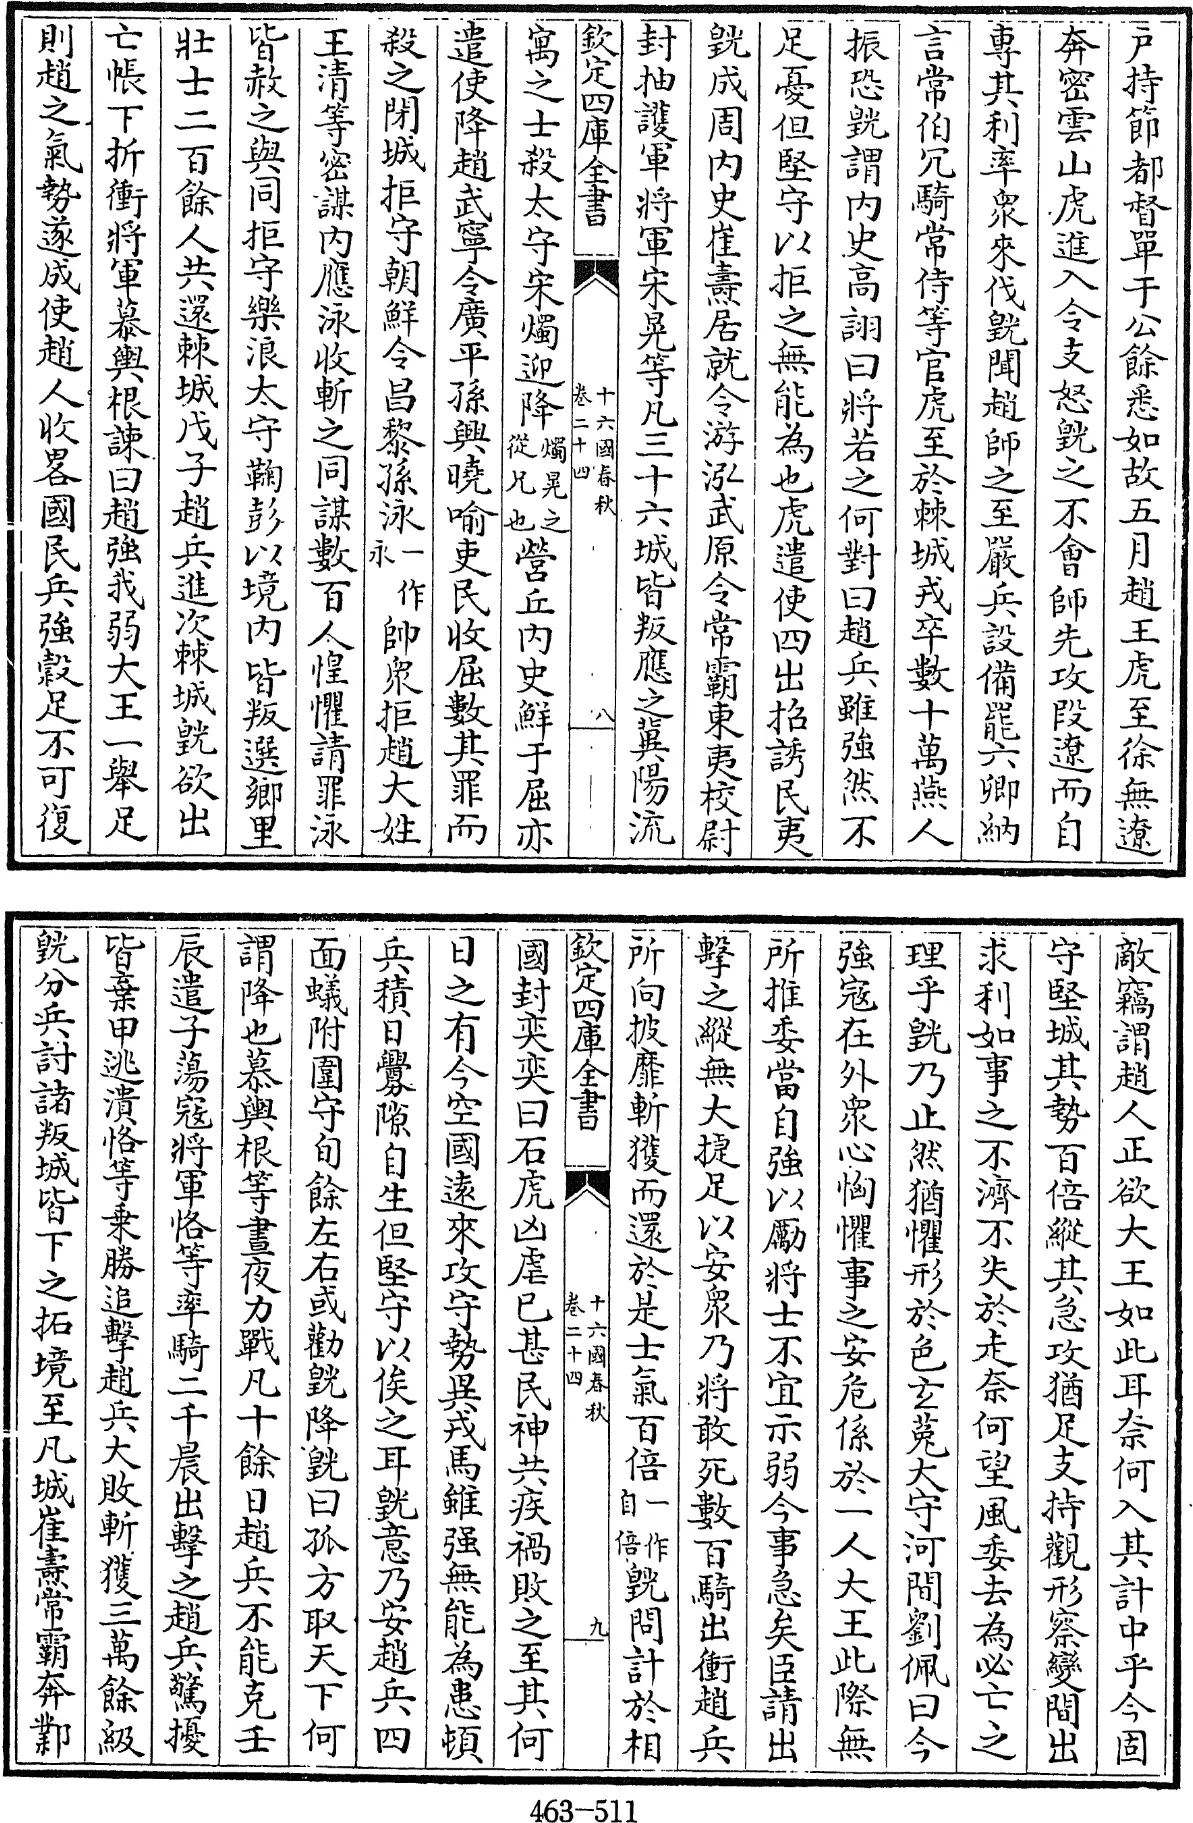 戸持節都督單于公餘悉如故五月趙王虎至徐無遼
奔密雲山虎進入令支怒皝之不會師先攻段遼而自
專其利率衆來伐皝聞趙師之至嚴兵設備罷六卿納
言常伯冗騎常侍等官虎至於棘城戎卒數十萬燕人
振恐皝謂内史高詡曰將若之何對曰趙兵雖強然不
足憂但堅守以拒之無能為也虎遣使四出招誘民夷
皝成周内史崔壽居就令游泓武原令常霸東夷校尉
封抽護軍將軍宋晃等凡三十六城皆叛應之冀陽流
欽定四庫全書
十六國春秋
卷二十四
八
寓之士殺太守宋燭迎降燭晃之從兄也營丘内史鮮于屈亦
遣使降趙武寧令廣平孫興曉喻吏民收屈數其罪而
殺之閉城拒守朝鮮令昌黎孫泳一作永帥衆拒趙大姓
王清等密謀内應泳收斬之同謀數百人惶懼請罪泳
皆赦之與同拒守樂浪太守鞠彭以境内皆叛選鄉里
壯士二百餘人共還棘城戊子趙兵進次棘城皝欲出
亡帳下折衝將軍慕輿根諫曰趙強我弱大王一舉足
則趙之氣勢遂成使趙人收畧國民兵強穀足不可復
敵竊謂趙人正欲大王如此耳奈何入其計中乎今固
守堅城其勢百倍縱其急攻猶足支持觀形察變間出
求利如事之不濟不失於走奈何望風委去為必亡之
理乎皝乃止然猶懼形於色玄菟大守河間劉佩曰今
強寇在外衆心恟懼事之安危係於一人大王此際無
所推委當自強以勵將士不宜示弱今事急矣臣請出
擊之縱無大捷足以安衆乃將敢死數百騎出衝趙兵
所向披靡斬獲而還於是士氣百倍一作自倍皝問計於相
欽定四庫全書
十六國春秋
卷二十四
九
國封奕奕曰石虎凶虐已甚民神共疾禍敗之至其何
日之有今空國遠來攻守勢異戎馬雖强無能為患頓
兵積日釁隙自生但堅守以俟之耳皝意乃安趙兵四
面蟻附圍守旬餘左右或勸皝降皝曰孤方取天下何
謂降也慕輿根等晝夜力戰凡十餘日趙兵不能克壬
辰遣子蕩寇將軍恪等率騎二千晨出擊之趙兵驚擾
皆棄甲逃潰恪等乗勝追擊趙兵大敗斬獲三萬餘級
皝分兵討諸叛城皆下之拓境至凡城崔壽常霸奔鄴
463-511